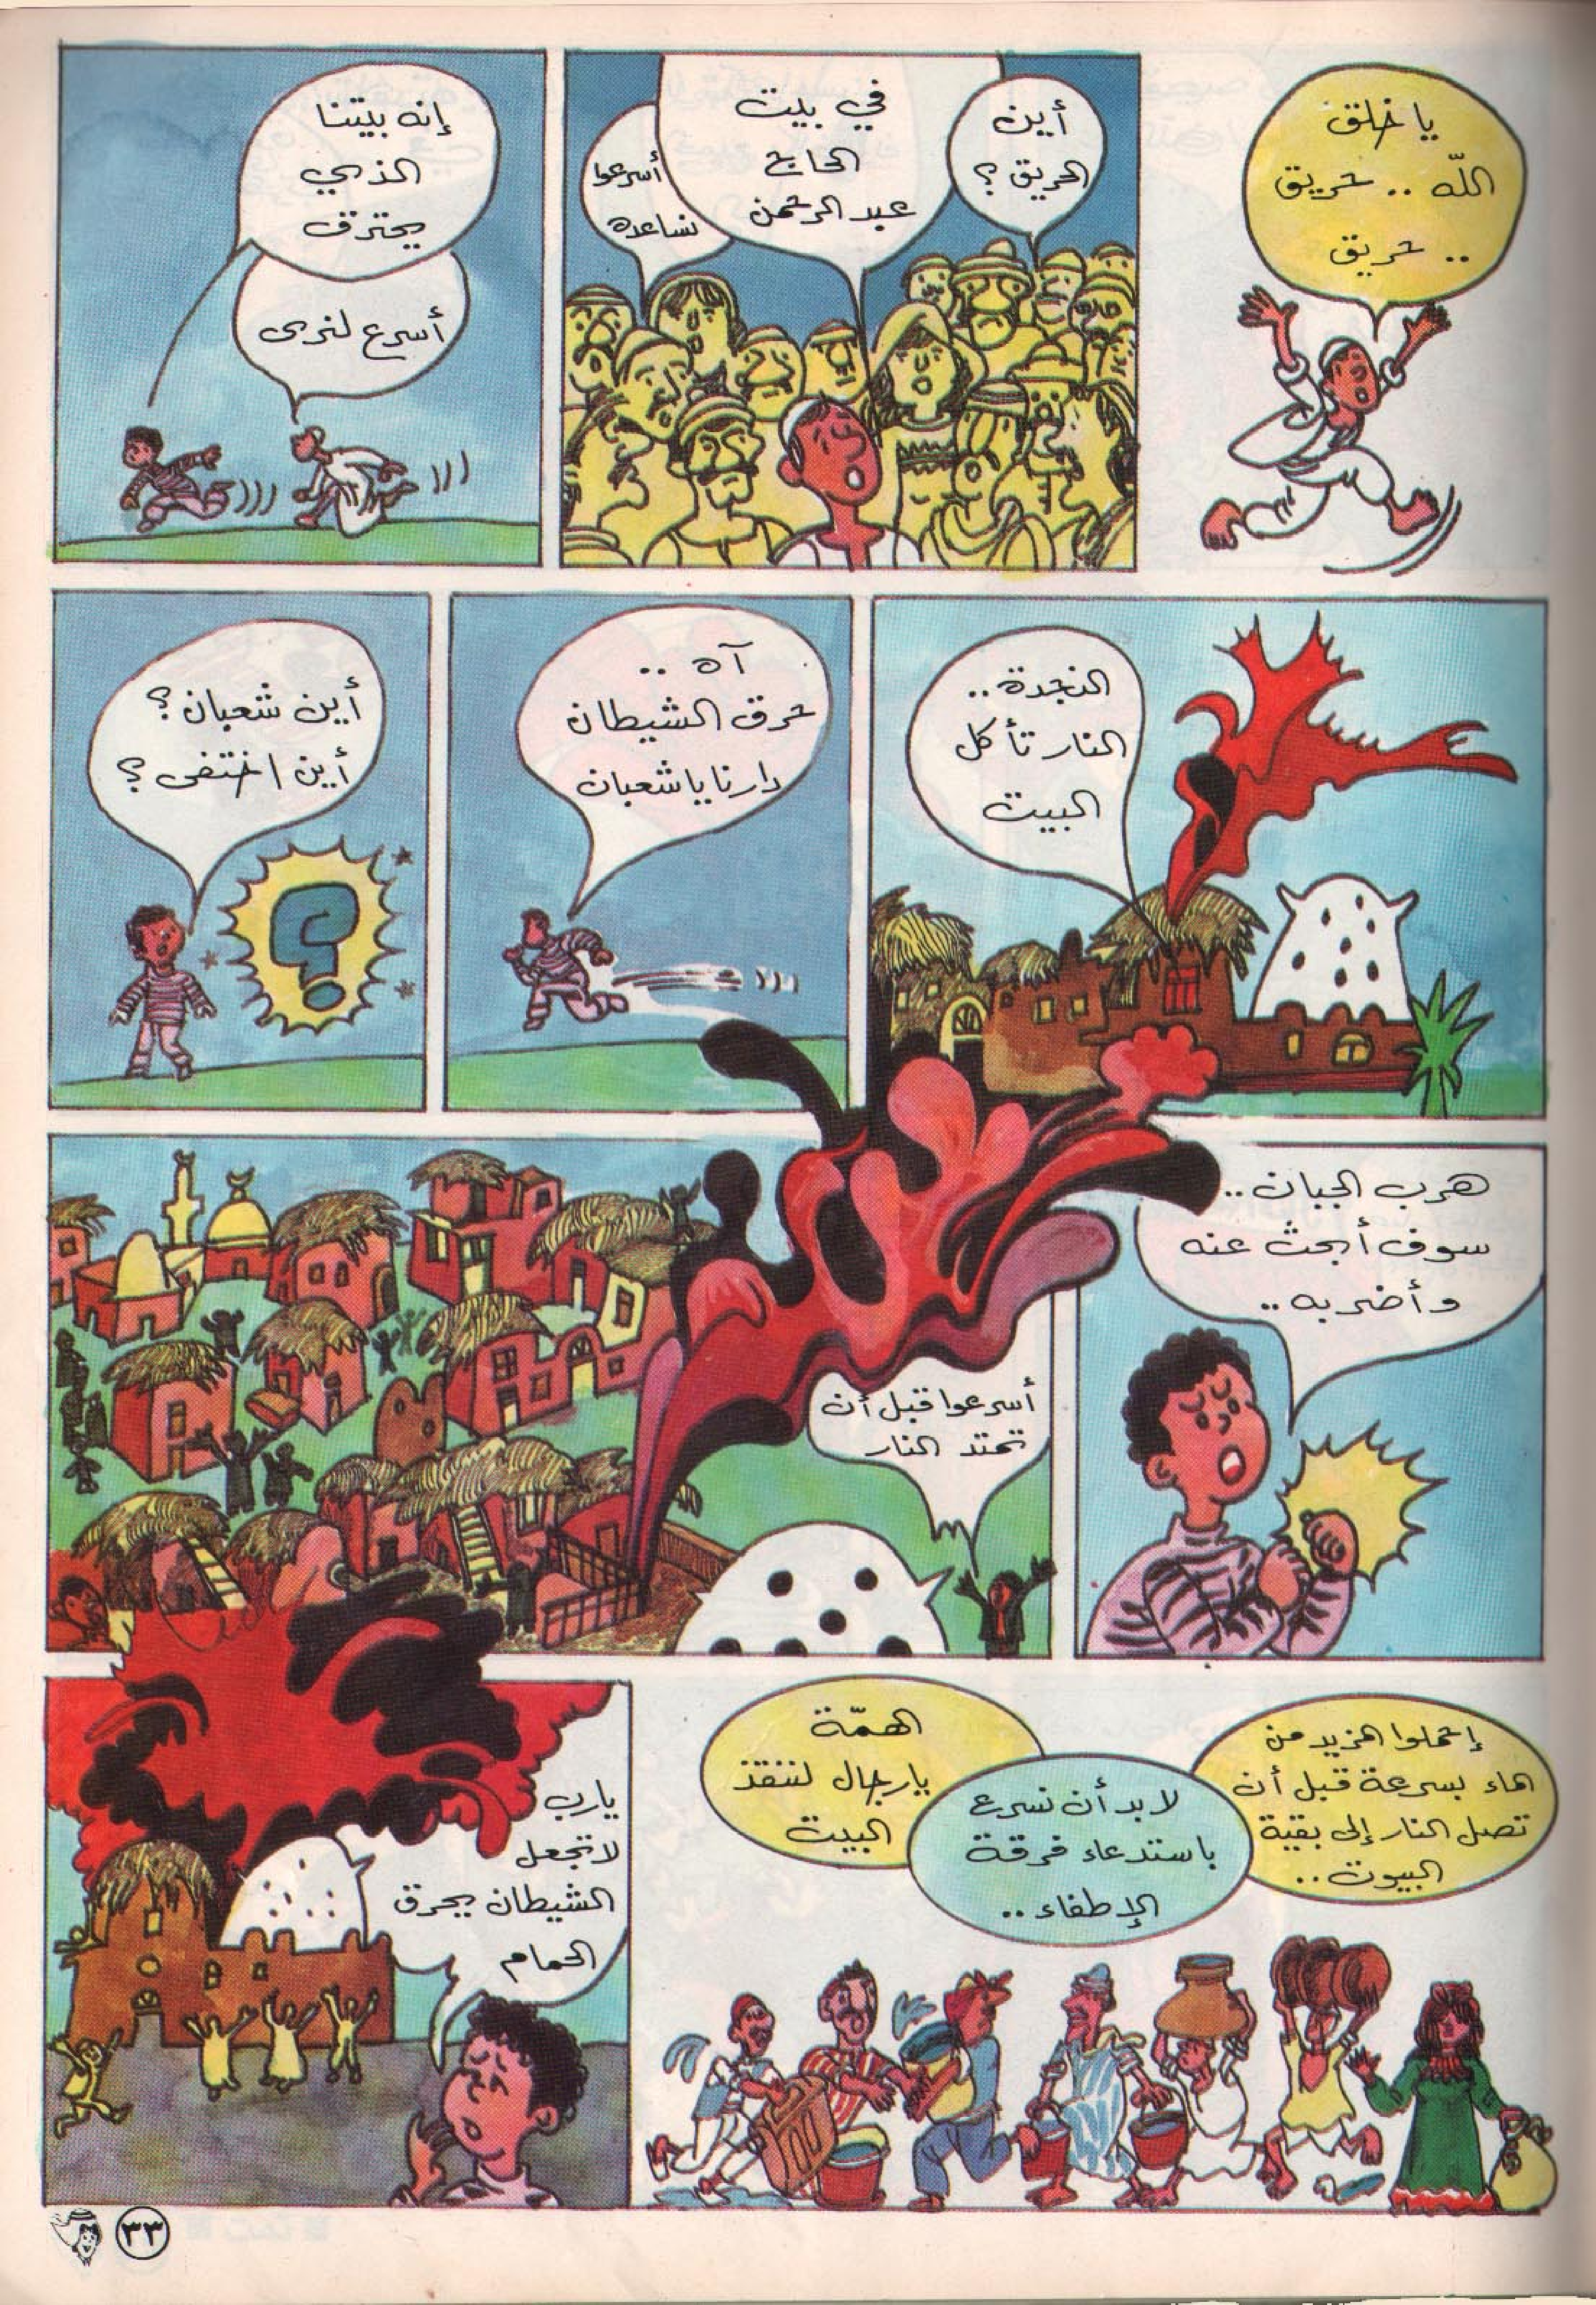 يا خلق
الله .. حريق
.. حريق
أين
الحريق ؟
في بيت
الحاج
عبد الرحمن
أسرعوا
نساعده
إنه بيتنا
الذي
يحترق
أسرع لنرى
النجدة ..
النار تأكل
البيت
آه ..
حرق الشيطان
دارنا يا شعبان
أين شعبان ؟
أين اختفى ؟
هرب الجبان ..
سوف أبحث عنه
وأضربه ..
أسرعوا قبل أن
تمتد النار
إحملوا المزيد من
الماء بسرعة قبل أن
تصل النار إلى بقية
البيوت ..
لا بد أن نسرع
باستدعاء فرقة
الإطفاء ..
الهمّة
يا رجال لننقذ
البيت
يا رب
لا تجعل
الشيطان يحرق
الحمام
٣٣